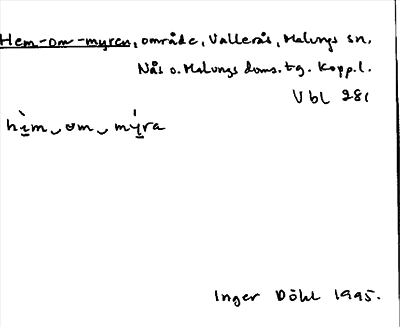 Hem-om-myren, område, Vallerås, Malungs sn,
Nås o. Malungs doms. tg. Kopp. l.
Vbl 281
hèm‿om‿mýra
Inger Döhl 1995.